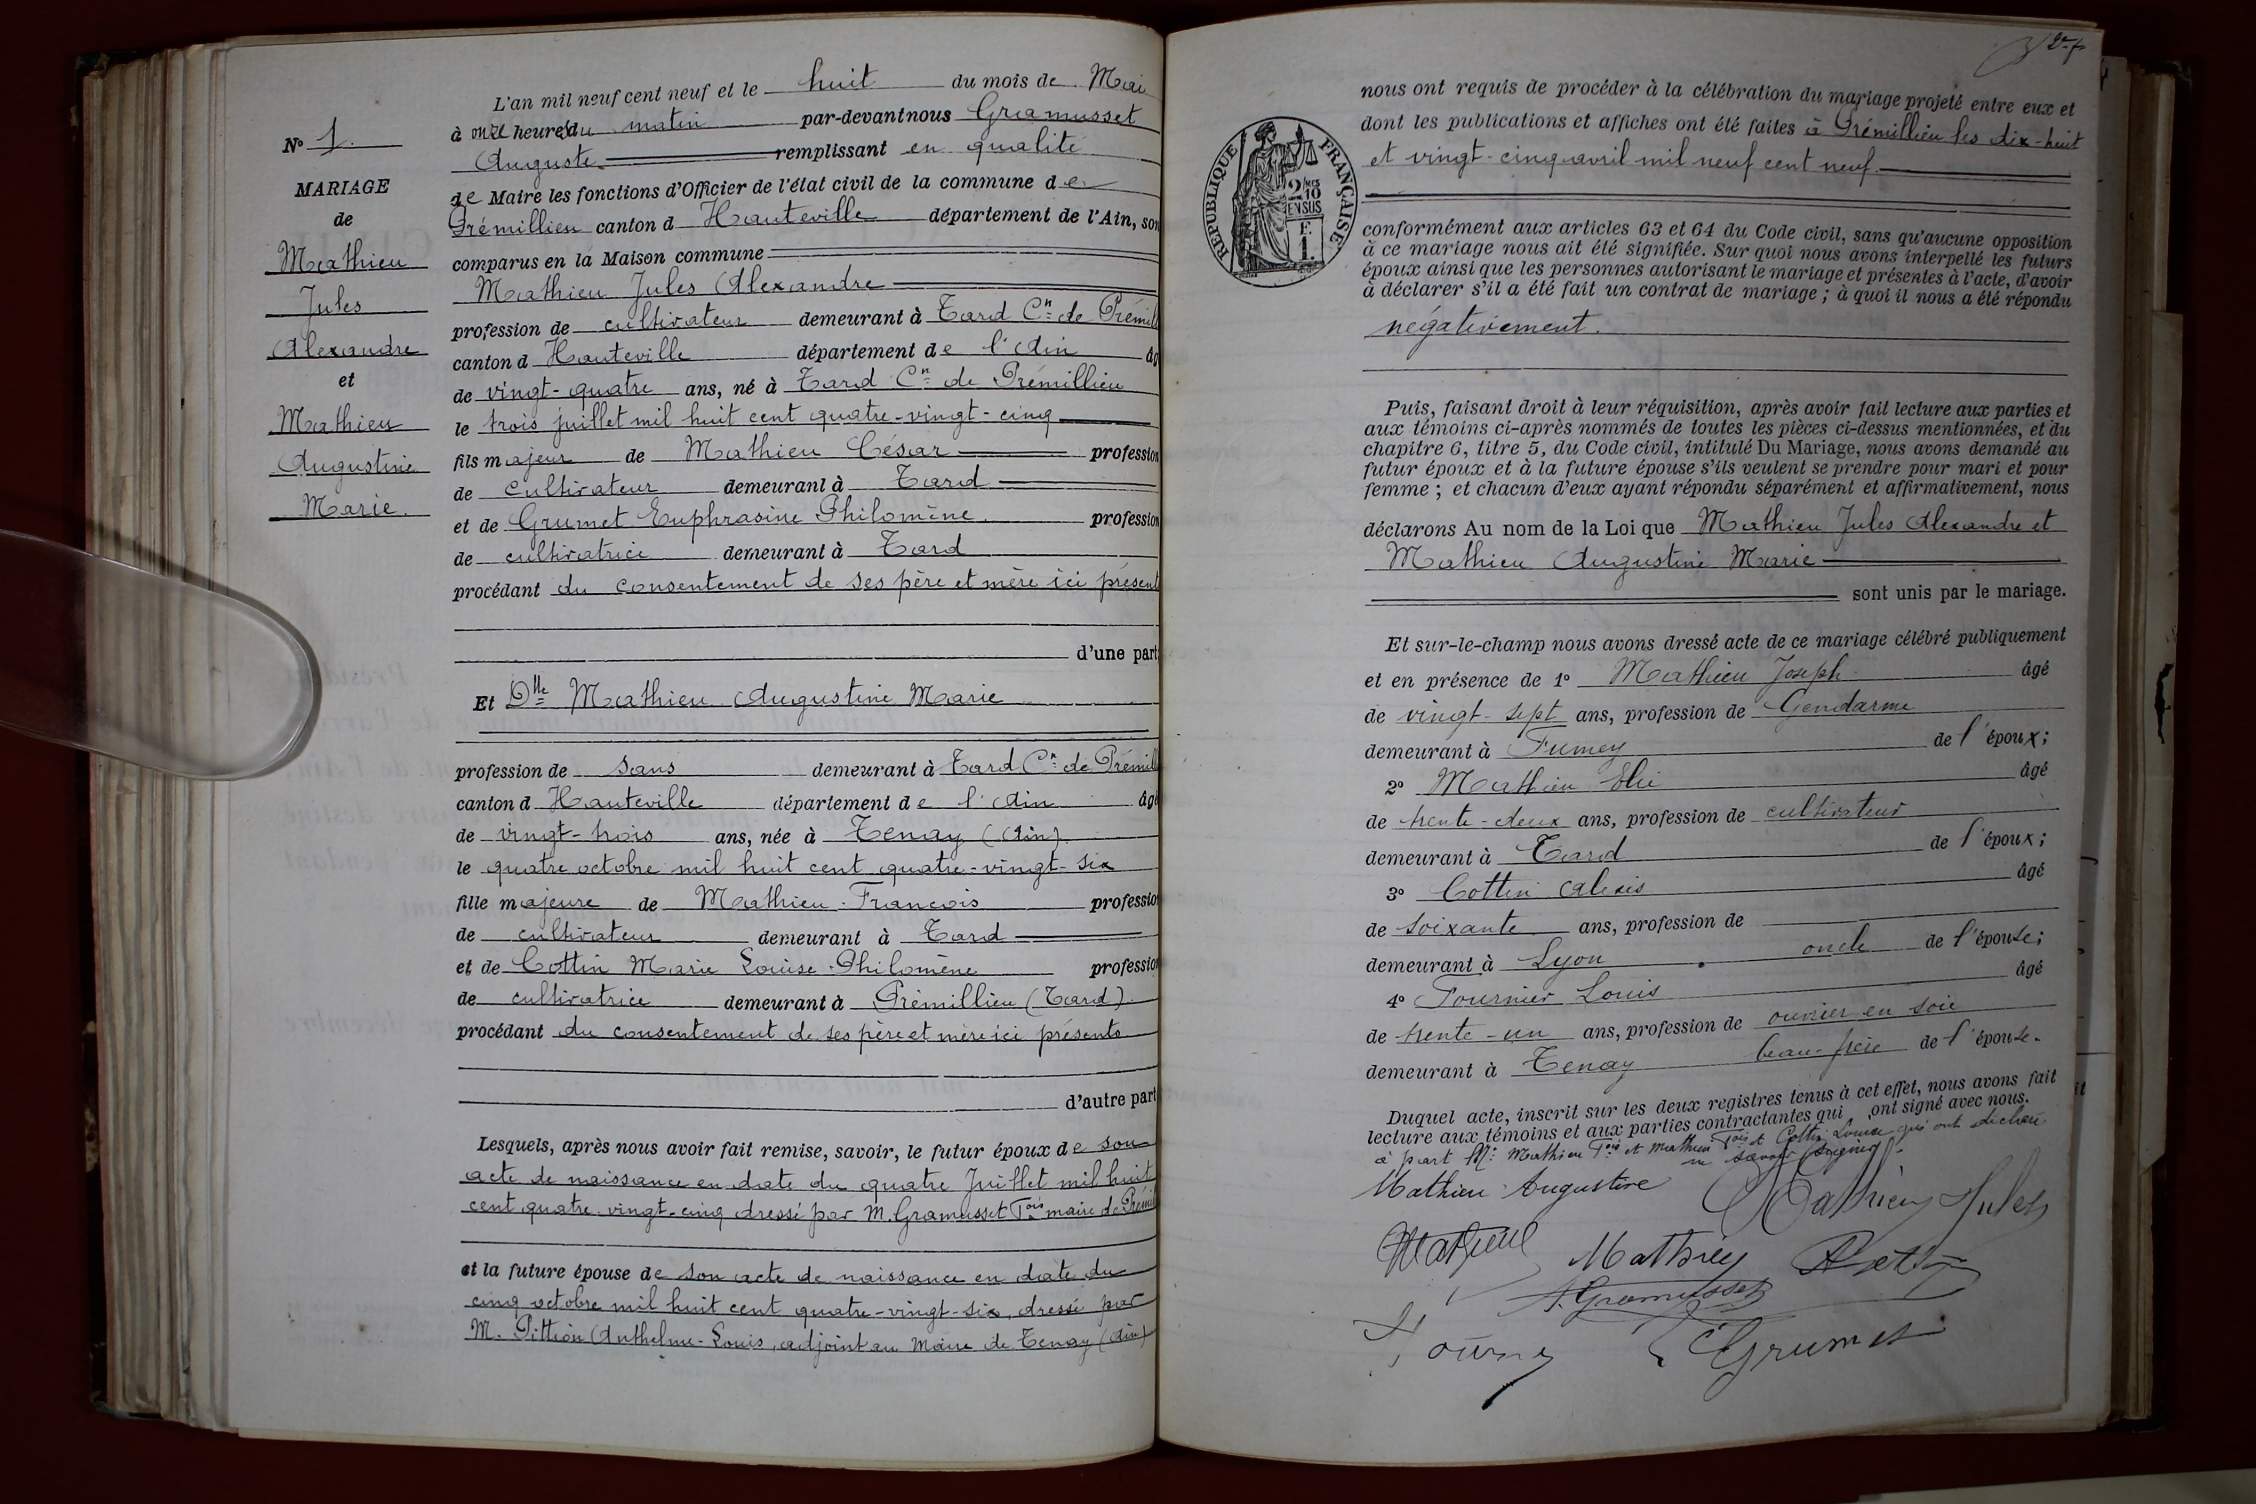 L'an mil neuf cent neuf et le huit du mois de Mai
à onze heures du matin par-devant nous Gramusset
Auguste remplissant en qualité
de Maire les fonctions d'Officier de l'état civil de la commune de
Prémillieu canton d Hauteville département de l'Ain, son
comparus en la Maison commune
Mathieu Jules Alexandre
profession de cultivateur demeurant à Tard Cne de Prémill
canton d Hauteville département de l'Ain âg
de vingt-quatre ans, né à Tard Cne de Prémillieu
le trois juillet mil huit cent quatre-vingt-cinq
fils majeur de Mathieu César profession
de cultivateur demeurant à Tard
et de Grumet Euphrasine Philomène profession
de cultivatrice demeurant à Tard
procédant du consentement de ses père et mère ici présent
d'une part
Et Dlle Mathieu Augustine Marie
profession de sans demeurant à Tard Cne de Prémill
canton d Hauteville département de l'Ain âgé
de vingt-trois ans, née à Tenay (Ain)
le quatre octobre mil huit cent quatre-vingt-six
fille majeure de Mathieu François professio
de cultivateur demeurant à Tard
et de Cottin Marie Louise Philomène profession
de cultivatrice demeurant à Prémillieu (Tard)
procédant du consentement de ses père et mère ici présents
d'autre part
Lesquels, après nous avoir fait remise, savoir, le futur époux de son
acte de naissance en date du quatre Juillet mil huit
cent quatre-vingt-cinq dressé par M. Gramusset Fois maire de Prémil
et la future épouse de son acte de naissance en date du
cinq octobre mil huit cent quatre-vingt-six, dressé par
M. Pittion Anthelme-Louis, adjoint au Maire de Tenay (Ain)
No 1
MARIAGE
de
Mathieu
Jules
Alexandre
et
Mathieu
Augustine
Marie.
nous ont requis de procéder à la célébration du mariage projeté entre eux et
dont les publications et affiches ont été faites à Prémillieu les dix-huit
et vingt-cinq avril mil neuf cent neuf.
RÉPUBLIQUE FRANÇAISE
2/10
EN SUS
1.
conformément aux articles 63 et 64 du Code civil, sans qu'aucune opposition
à ce mariage nous ait été signifiée. Sur quoi nous avons interpellé les futurs
époux ainsi que les personnes autorisant le mariage et présentes à l'acte, d'avoir
à déclarer s'il a été fait un contrat de mariage ; à quoi il nous a été répondu
négativement.
Puis, faisant droit à leur réquisition, après avoir fait lecture aux parties et
aux témoins ci-après nommés de toutes les pièces ci-dessus mentionnées, et du
chapitre 6, titre 5, du Code civil, intitulé Du Mariage, nous avons demandé au
futur époux et à la future épouse s'ils veulent se prendre pour mari et pour
femme ; et chacun d'eux ayant répondu séparément et affirmativement, nous
déclarons Au nom de la Loi que Mathieu Jules Alexandre et
Mathieu Augustine Marie
sont unis par le mariage.
Et sur-le-champ nous avons dressé acte de ce mariage célébré publiquement
et en présence de 1o Mathieu Joseph âgé
de vingt-sept ans, profession de Gendarme
demeurant à Fumey de l'époux;
2o Mathieu Elie âgé
de trente-deux ans, profession de cultivateur
demeurant à Tard de l'époux;
3o Cottin Alexis âgé
de soixante ans, profession de
demeurant à Lyon oncle de l'épouse;
4o Fournier Louis âgé
de trente-un ans, profession de ouvrier en soie
demeurant à Tenay beau-frère de l'épouse.
Duquel acte, inscrit sur les deux registres tenus à cet effet, nous avons fait
lecture aux témoins et aux parties contractantes qui ont signé avec nous.
à part M. Mathieu Fois et Cottin Louise qui ont déclaré
ne savoir signer.
Mathieu Augustine Mathieu Jules
Mathieu Mathieu
A. Gramusset
Grumet